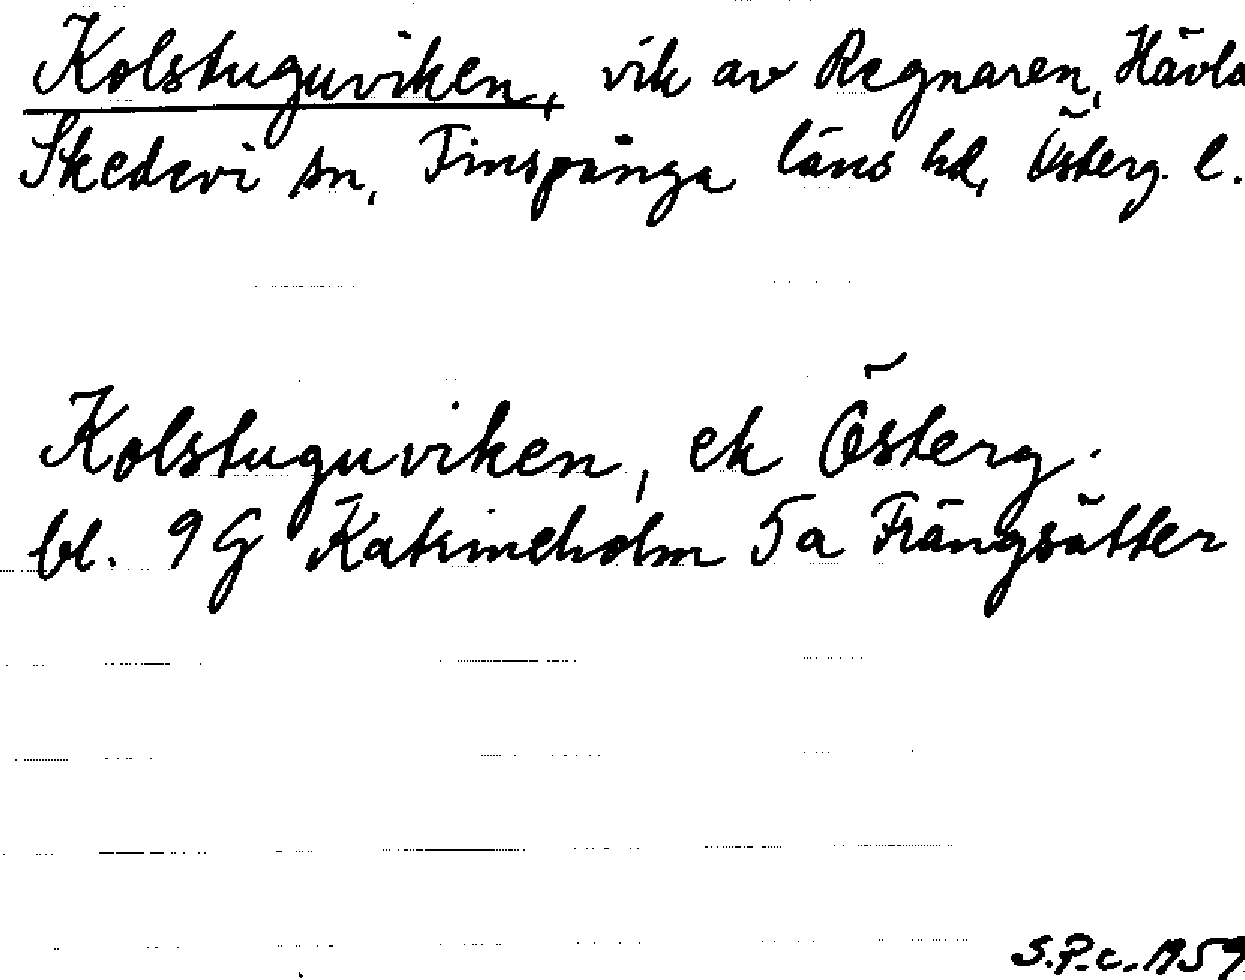 Kolstuguviken, vik av Regnaren, Hävla
Skedevi sn, Finspånga läns hd, Österg. l.
Kolstuguviken, ek Österg.
bl. 9 G Katrineholm 5a Frängsätter
S.P.c. 1959